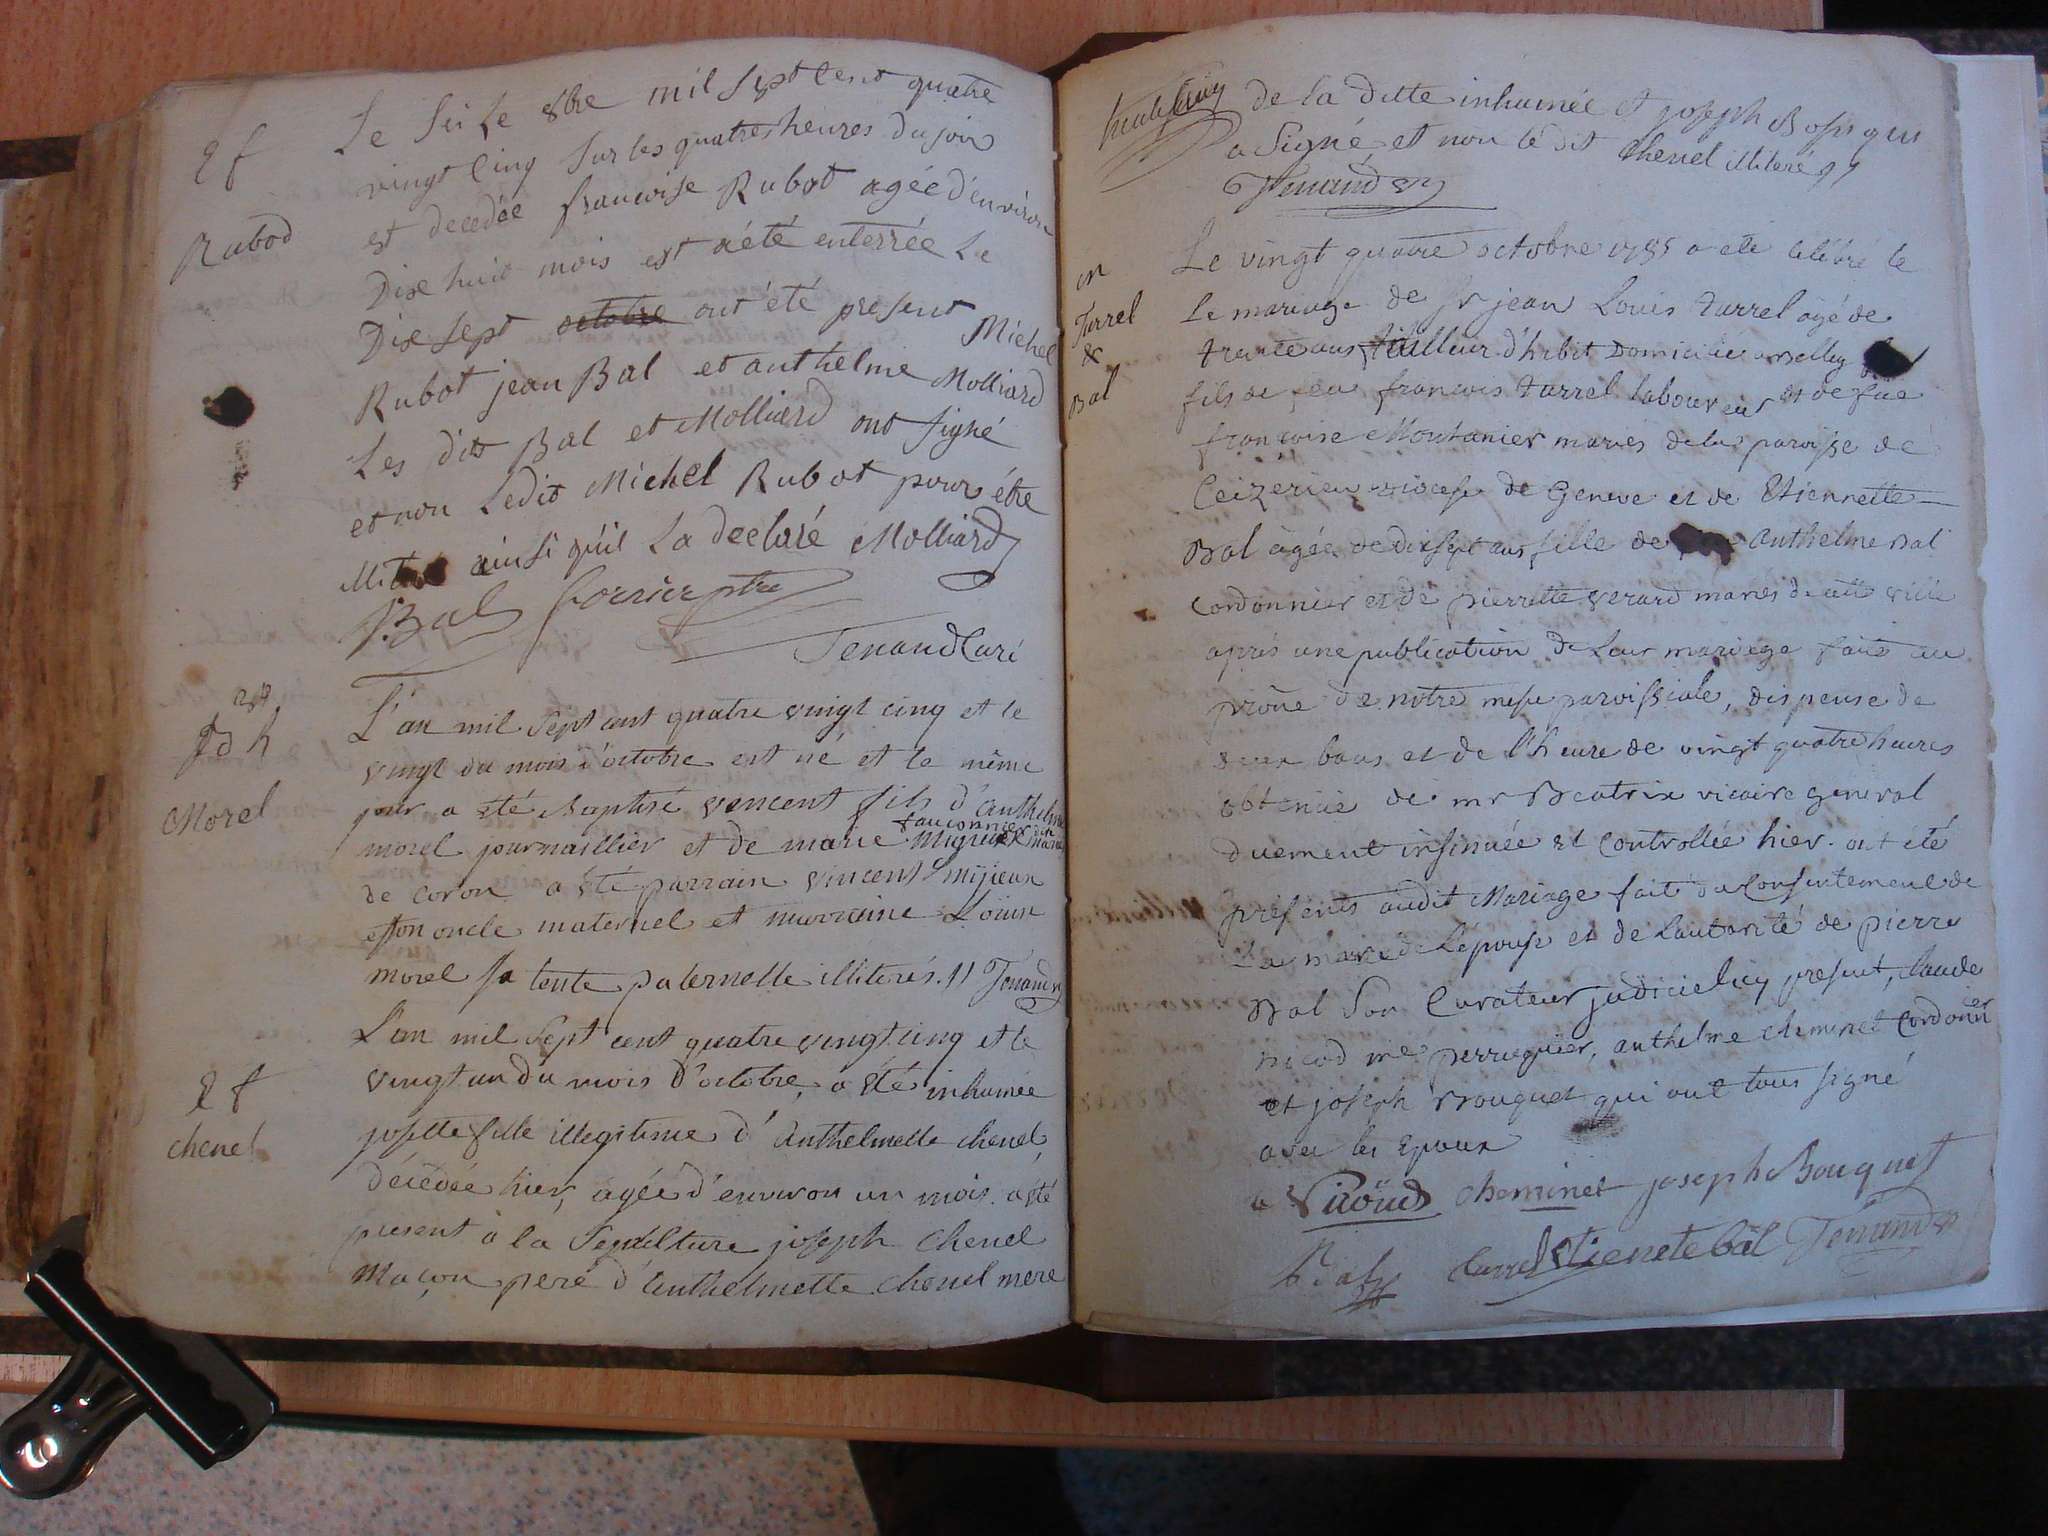 Ef
Rubod
Le seize 8bre mil sept cent quatre
vingt cinq sur les quatres heures du soir
est decedée francoise Rubot agée d'environ
Dixe huit mois est a été enterrée Le
Dixe sept octobre ont été present Michel
Rubot jean Bal et anthelme Molliard
Les dits Bal et Molliard ont signé
et non Ledit Michel Rubot pour être
ainsi qu'il La declaré Molliard
Bal ptre
Tenand Curé
Morel
L'an mil sept cent quatre vingt cinq et le
vingt du mois d'octobre est né et le même
jour a été Baptisé vencent fils d'anthelme
morel journaillier et de marie
de coron a été parrain vincent mijieux
son oncle maternel et marraine Loüise
morel sa tente paternelle illiterés. // Tenand
Ef
chenel
L'an mil sept cent quatre vingt cinq et le
vingt un du mois d'octobre, a été inhumée
josette fille illegitime d'Anthelmette chenel,
décedée hier, agée d'environ un mois. a été
present à la Sepulture joseph Chenel
Maçon pere d'anthelmette chenel mere
de la ditte inhumée et joseph qui
a signé et non le dit Chenel illiteré
Tenand
m
Turrel
&
Bal
Le vingt quatre octobre 1785 a été célébré le
le mariage de Sr jean Louis turrel agé de
trente ans, tailleur d'hbit Domicilié a Belley
fils de feu francois turrel laboureur et de fue
françoise Montanier mariés de la paroisse de
Ceizerieu diocese de Geneve et de Etiennette
Bal agée de dixsept ans fille de anthelme Bal
Cordonnier et de pierrette verard mariés de cette ville
après une publication de leur mariage faite au
prône de notre messe paroissiale, dispense de
deux bans et de l'heure de vingt quatre heures
obtenüe de mr Beatrix vicaire general
duement insinuée et controllée hier. ont été
présents audit Mariage fait du Consentement de
la mere de l'épouse et de l'autorité de pierre
Bal son Curateur judiciel icy present, Claude
nicod me perruquier, anthelme cheminet Cordonnier
et joseph Bouquet qui ont tous signé
avec les Epoux
cheminet joseph Bouquet
turrel Etienete bal Tenand